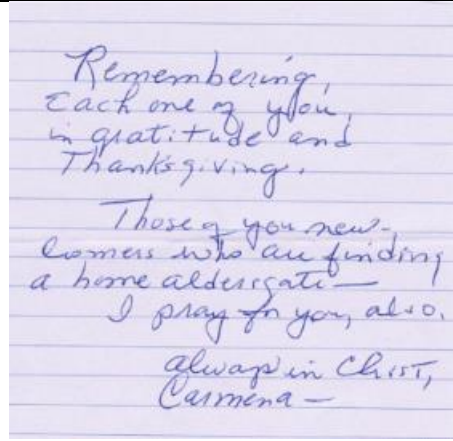 Remembering,
Each one of you,
in gratitude and
Thanksgiving.
Those of you new-
comers who are finding
a home aldersgate—
I pray for you, also.
Always in Christ,
Carmena—